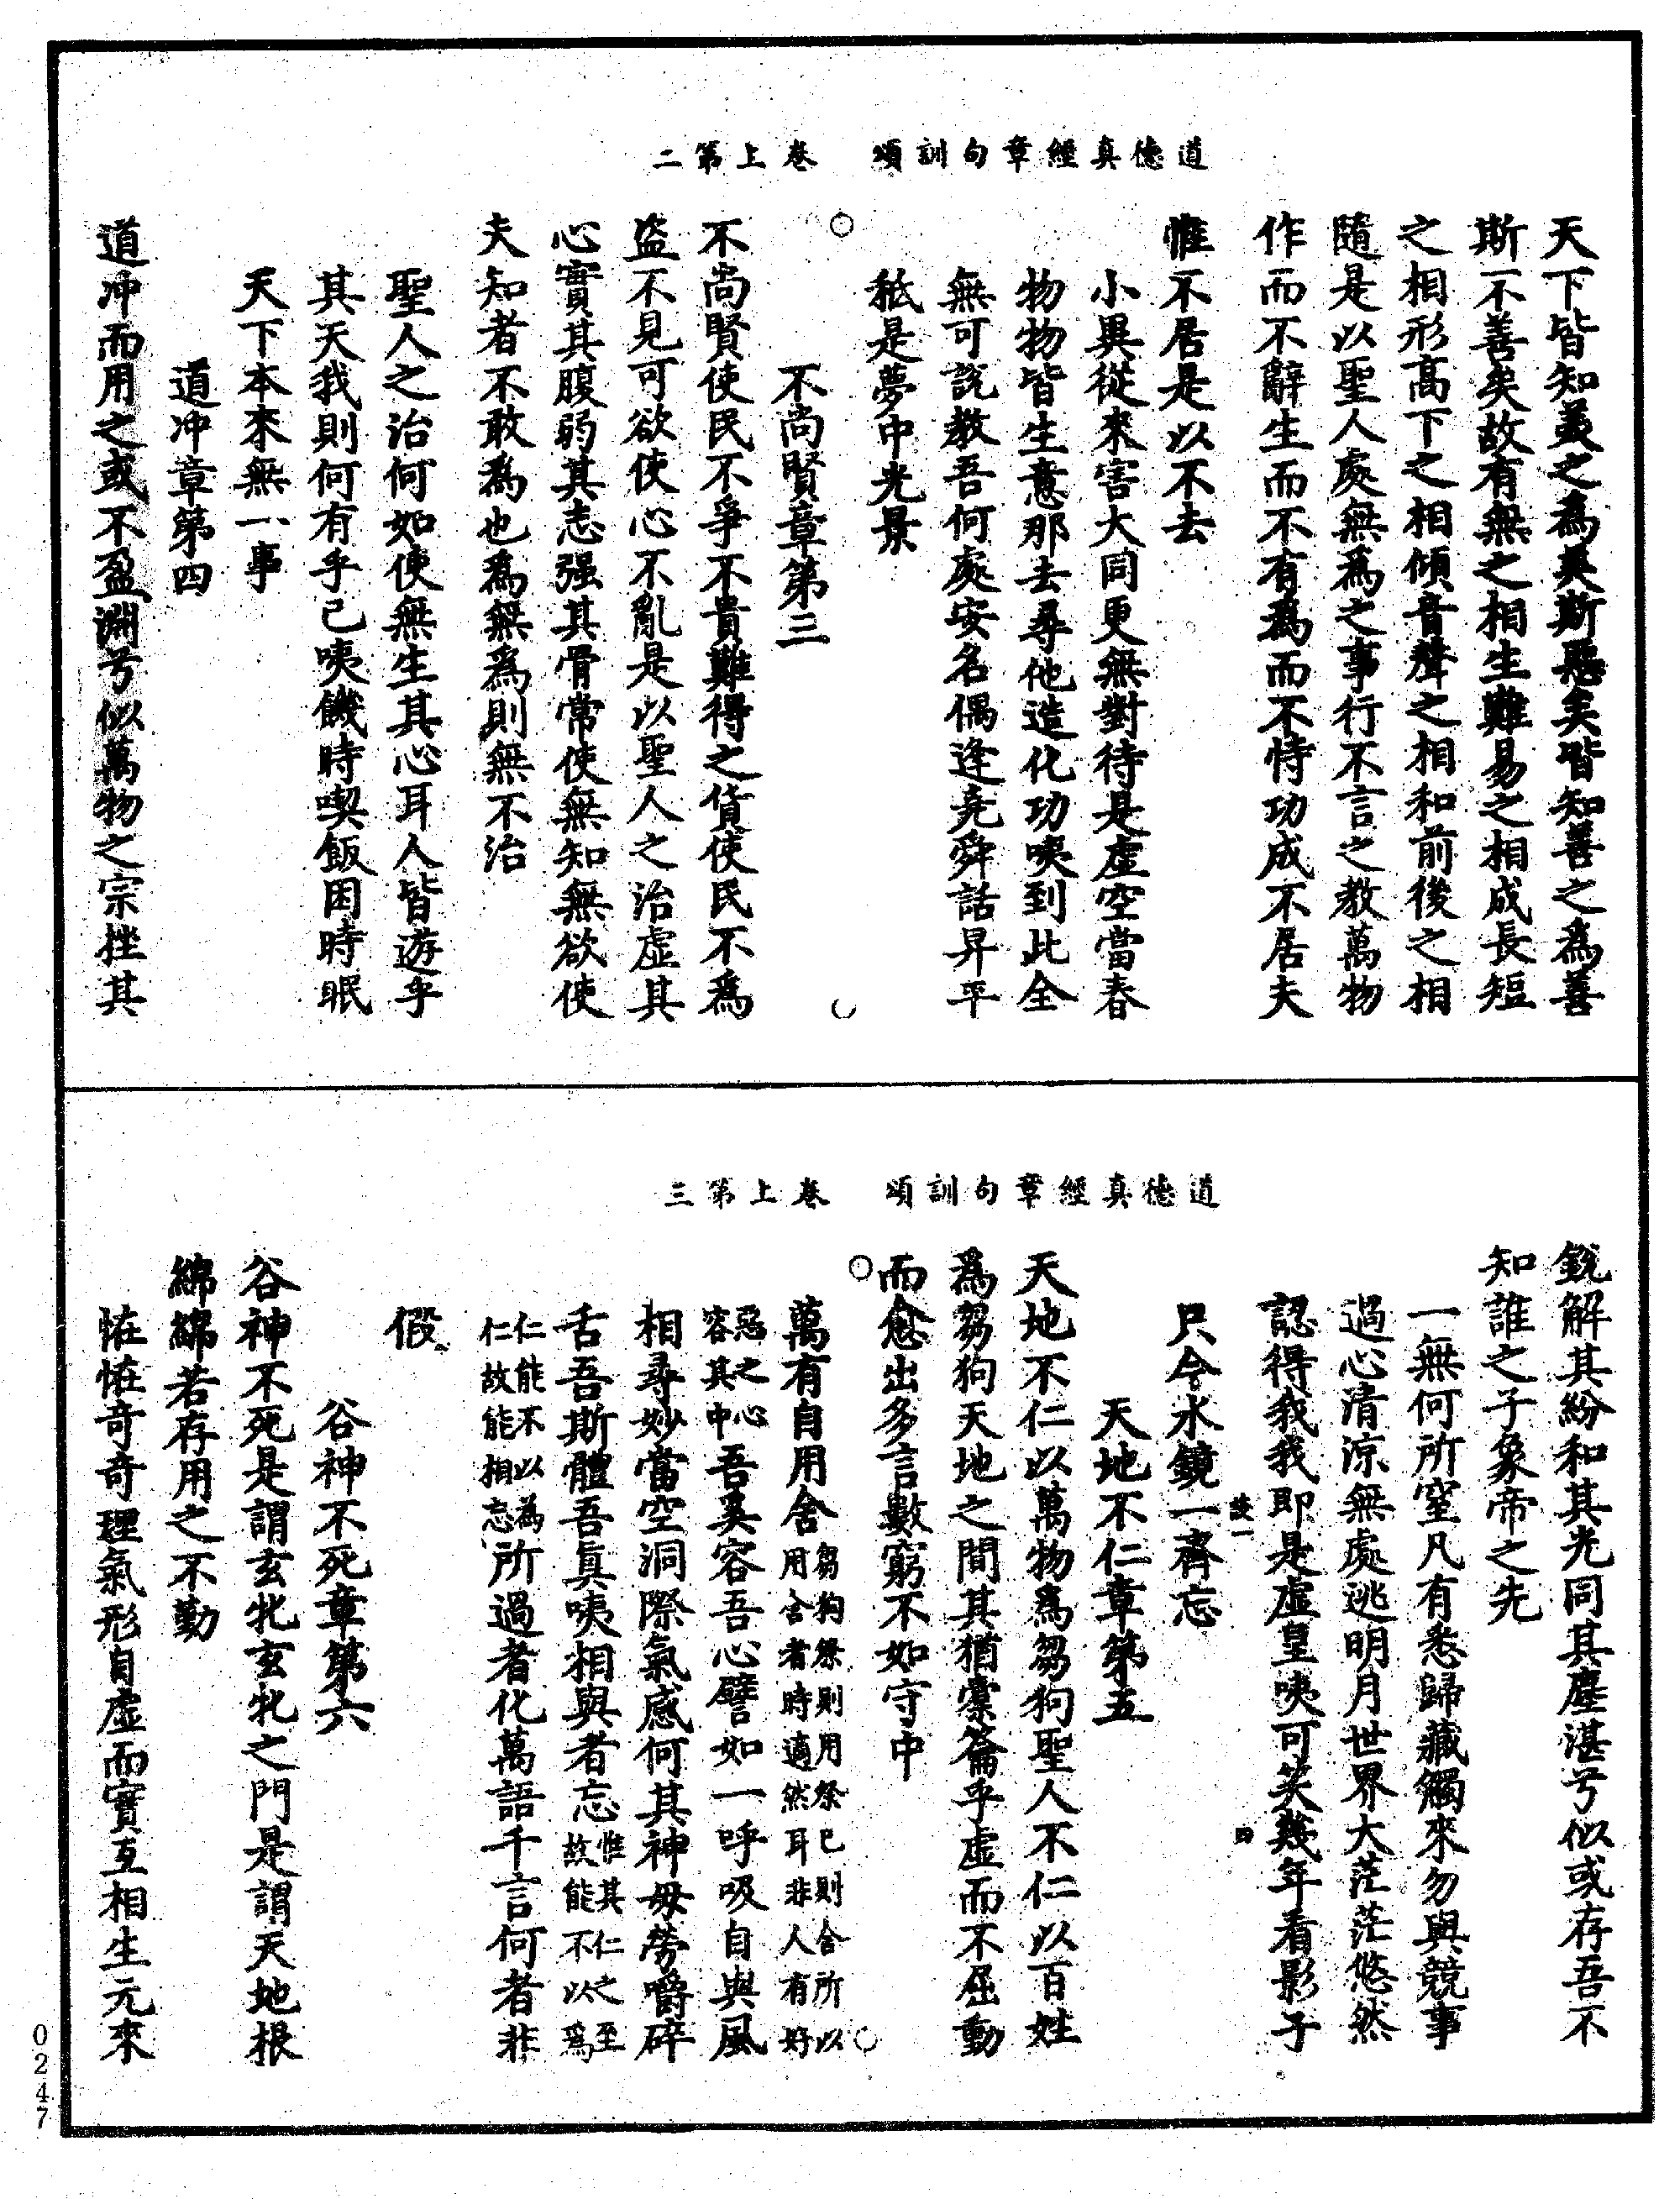 道德真經章句訓頌　卷上第二
天下皆知美之為美斯惡矣皆知善之為善
斯不善矣故有無之相生難易之相成長短
之相形高下之相傾音聲之相和前後之相
隨是以聖人處無為之事行不言之教萬物
作而不辭生而不有為而不恃功成不居夫
惟不居是以不去
小異從來害大同更無對待是虛空當春
物物皆生意那去尋他造化功咦到此全
無可說教吾何處安名偶逢堯舜話昇平
秖是夢中光景
不尚賢章第三
不尚賢使民不爭不貴難得之貨使民不為
盜不見可欲使心不亂是以聖人之治虛其
心實其腹弱其志强其骨常使無知無欲使
夫知者不敢為也為無為則無不治
聖人之治何如使無生其心耳人皆遊乎
其天我則何有乎已咦饑時喫飯困時眠
天下本來無一事
道冲章第四
道冲而用之或不盈淵兮似萬物之宗挫其
道德真經章句訓頌　卷上第三
銳解其紛和其光同其塵湛兮似或存吾不
知誰之子象帝之先
一無何所窒凡有悉歸藏觸來勿與競事
過心清涼無處逃明月世界大茫茫悠然
認得我我即是虛皇咦可笑幾年看影子
四
只今水鏡一齊忘
天地不仁章第五
天地不仁以萬物為芻狗聖人不仁以百姓
為芻狗天地之間其猶槖籥乎虛而不屈動
而愈出多言數窮不如守中
萬有自用舍芻狗祭則用祭已則舍所以用舍者時適然耳非人有好
惡之心容其中吾奚容吾心譬如一呼吸自與風
相尋妙當空洞際氣感何其神毋勞嚼碎
舌吾斯體吾眞咦相與者忘惟其仁之至故能不以為
仁能不以為仁故能相忘所過者化萬語千言何者非
假
谷神不死章第六
谷神不死是謂玄牝玄牝之門是謂天地根
綿綿若存用之不勤
恠恠奇奇理氣形自虛而實互相生元來
0247